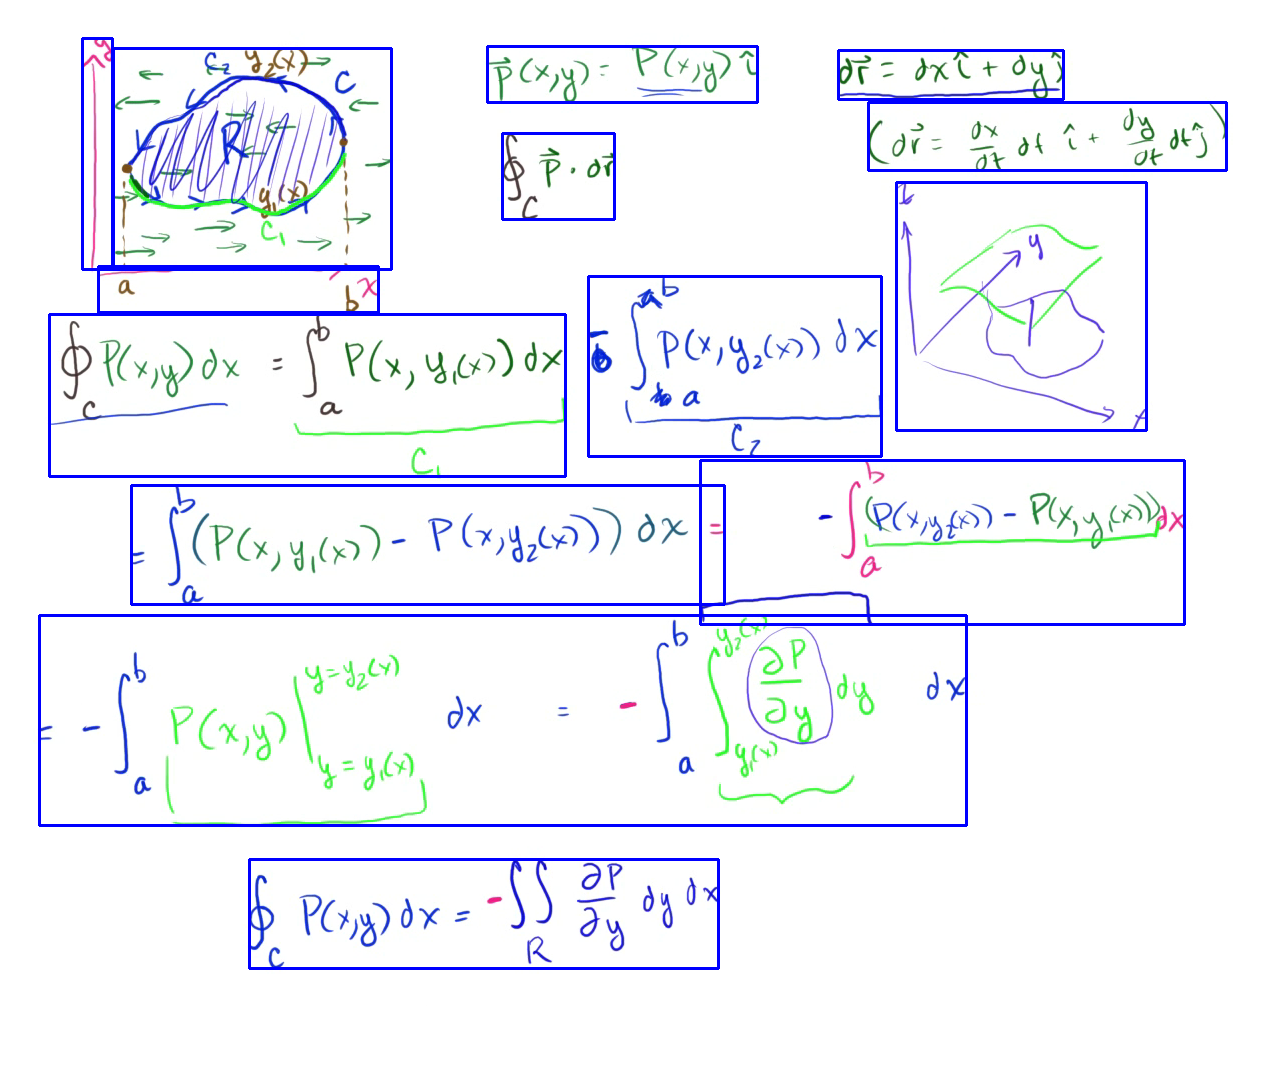 y
C₂ y₂(x)
C
R
y₁(x)
C₁
a b x
P⃗(x,y) = P(x,y) î
dr⃗ = dx î + dy ĵ
(dr⃗ = dx/dt dt î + dy/dt dt ĵ)
∮_C P⃗ · dr⃗
y
∮_C P(x,y) dx = ∫_a^b P(x, y₁(x)) dx - ∫_a^b P(x, y₂(x)) dx
C₁ C₂
= ∫_a^b (P(x, y₁(x)) - P(x, y₂(x))) dx = - ∫_a^b (P(x, y₂(x)) - P(x, y₁(x))) dx
= - ∫_a^b P(x,y) |_{y = y₁(x)}^{y = y₂(x)} dx = - ∫_a^b ∫_{y₁(x)}^{y₂(x)} ∂P/∂y dy dx
∮_C P(x,y) dx = - ∫∫_R ∂P/∂y dy dx